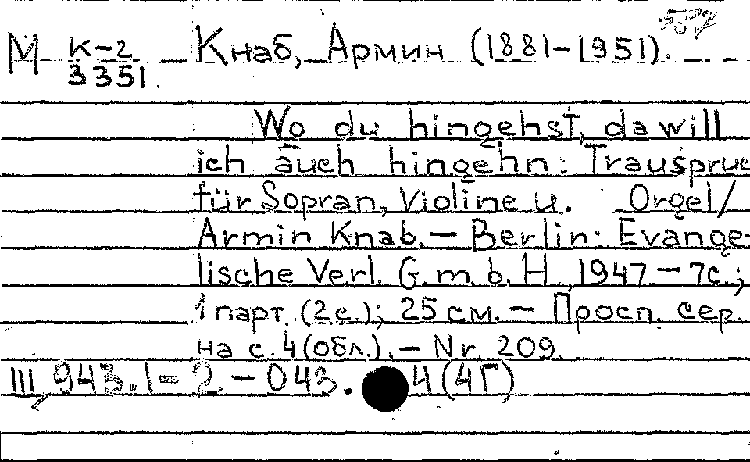 М К-2 Кнаб, Армин (1881-1951).
3351.
Wo du hingehst, da will
ich auch hingehn: Trauspruc
für Sopran, Violine u. Orgel/
Armin Knab. – Berlin: Evange-
lische Verl. G.m.b.H., 1947. – 7с.;
1 парт. (2с.); 25 см. – Просп. сер.
на с. 4 (обл.). – Nr. 209.
Ш 943.1-2.-043. 4(4Г)